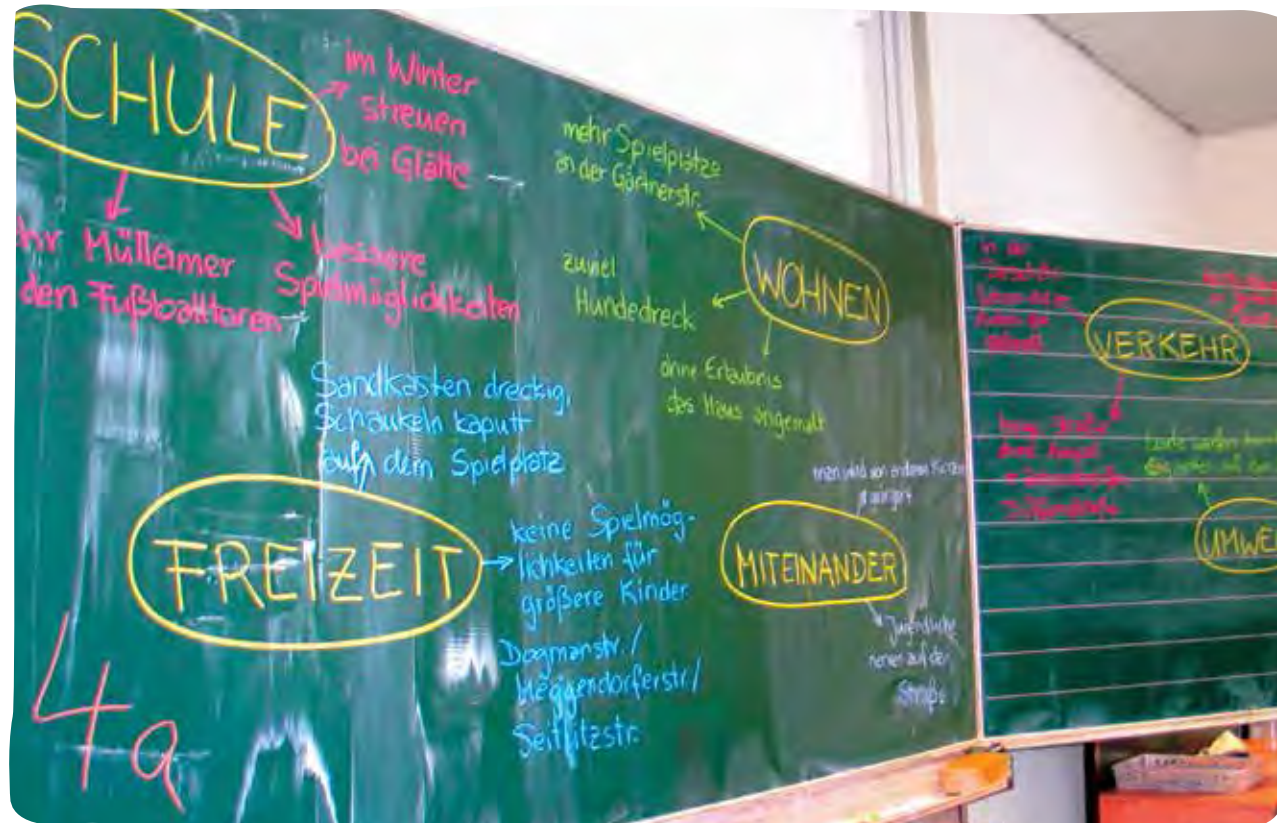 SCHULE
im Winter
streuen
bei Glätte
Mülleimer
den Fußballtoren
bessere
Spielmöglichkeiten
mehr Spielplätze
an der Gärtnerstr.
WOHNEN
zuviel
Hundedreck
ohne Erlaubnis
das Haus angemalt
Sandkasten dreckig,
Schaukeln kaputt
auf dem Spielplatz
FREIZEIT
keine Spielmög-
lichkeiten für
größere Kinder
Dagmarstr./
Meggendorferstr./
Seitlitzstr.
4a
man wird von anderen
MITEINANDER
Jugendliche
auf der
Straße
in der
VERKEHR
UMWE